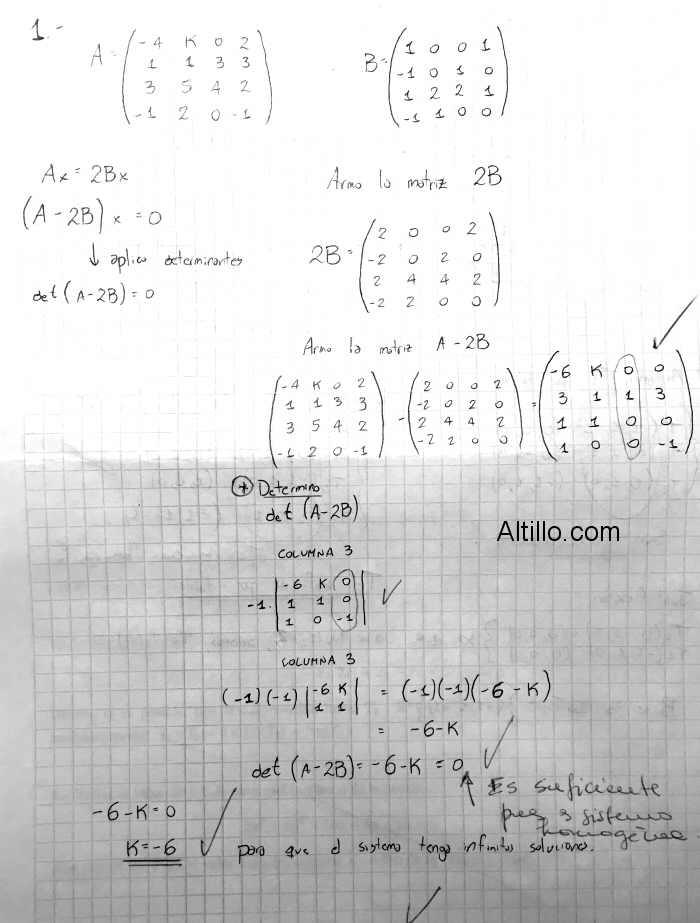 1.-
A = ( -4 K 0 2
1 1 3 3
3 5 4 2
-1 2 0 -1 )
B = ( 1 0 0 1
-1 0 1 0
1 2 2 1
-1 1 0 0 )
Ax = 2Bx
(A - 2B) x = 0
↓ aplico determinantes
det (A-2B) = 0
Armo la matriz 2B
2B = ( 2 0 0 2
-2 0 2 0
2 4 4 2
-2 2 0 0 )
Armo la matriz A-2B
( -4 K 0 2
1 1 3 3
3 5 4 2
-1 2 0 -1 )
- ( 2 0 0 2
-2 0 2 0
2 4 4 2
-2 2 0 0 )
= ( -6 K 0 0
3 1 1 3
1 1 0 0
1 0 0 -1 )
Determino
det (A-2B)
Altillo.com
COLUMNA 3
-1. | -6 K 0
1 1 0
1 0 -1 |
COLUMNA 3
(-1)(-1) | -6 K
1 1 | = (-1)(-1)(-6 - K)
= -6-K
det (A-2B) = -6-K = 0
↑ Es suficiente
pues sistema
homogéneo.
-6-K=0
K=-6 para que el sistema tenga infinitas soluciones.